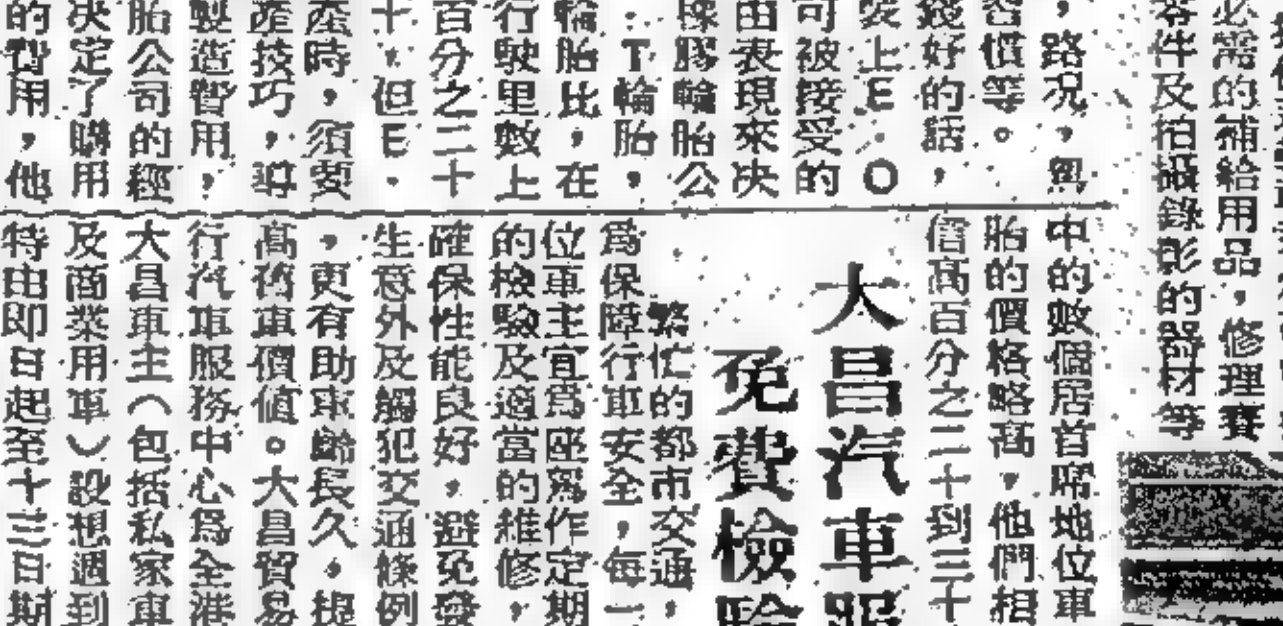 必需的補給用品，修理賽
零件及拍攝錄影的器材等
，路況，與
容慣等。
錢好的話，
上E．O
可被接受的
由表現來決
橡膠輪胎公
：T輪胎，
輪胎比，在
行駛里數上
百分之二十
十，但E．
產時，須要
產技巧，導
製造費用，
胎公司的經
決定了購用
的費用，他
中的數個居首席地位車
胎的價格略高，他們相
信高百分之二十到三十
大昌汽車服
免費檢驗
繁忙的都市交通，
為保障行車安全，每一
位車主宜為座駕作定期
的檢驗及適當的維修，
確保性能良好，避免發
生意外及觸犯交通條例
，更有助車齡長久，提
高舊車價值。大昌貿易
行汽車服務中心為全港
大昌車主（包括私家車
及商業用車）設想週到
特由即日起至十三日期